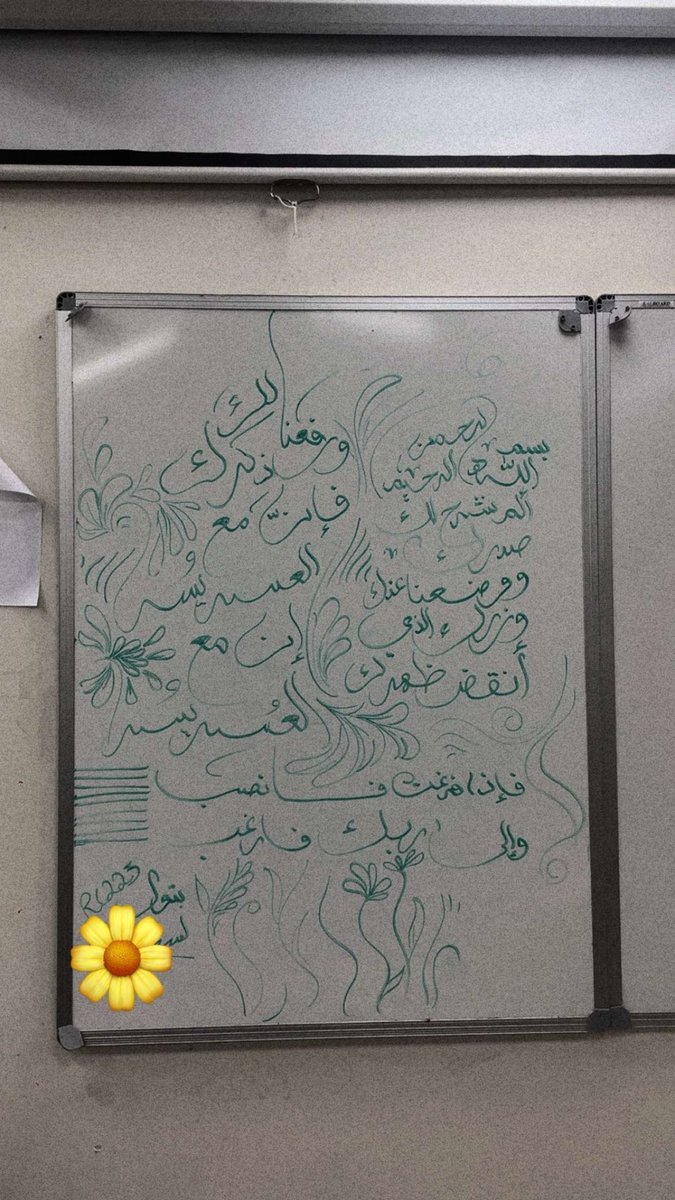 بسم الرحمن
اللّه الرحيم
ألم نشرح لك
صدرك
ووضعنا عنك
وزرك الذي
أنقض ظهرك
ورفعنا لك
ذكرك
فإنّ مع
العسر يُسر
إن مع
العُسر يسُر
فإذا فرغت فانصب
وإلى ربك فارغب
بتول